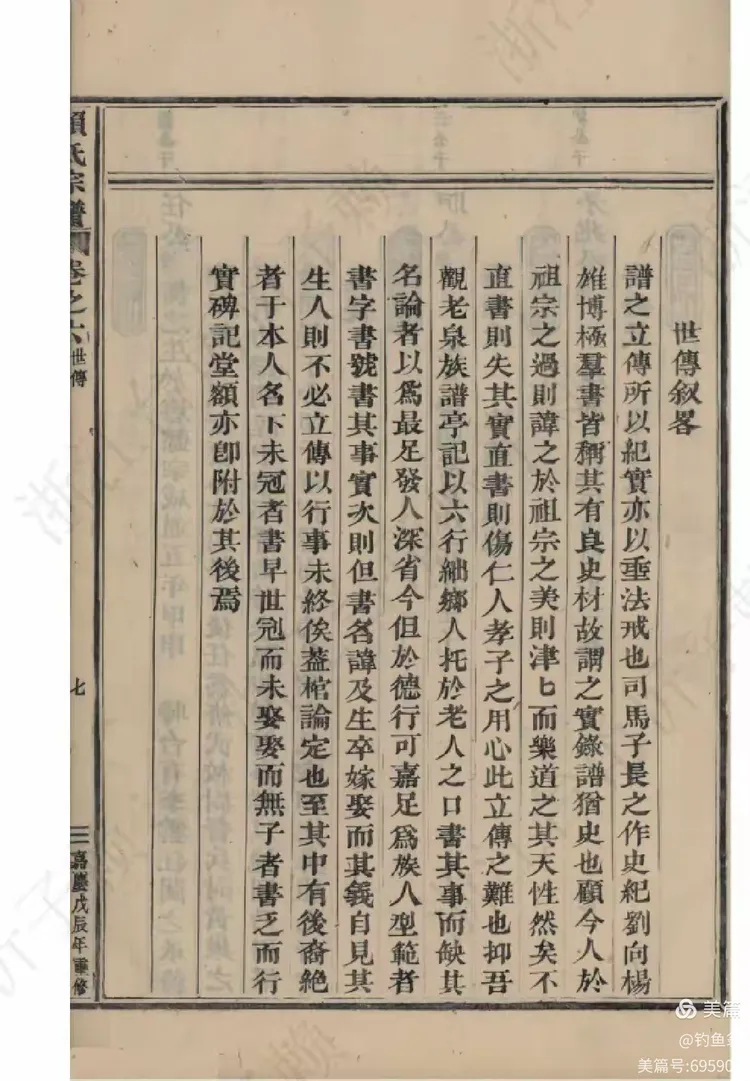 世傳叙畧
譜之立傳所以紀實亦以垂法戒也司馬子長之作史紀劉向楊
雄博極羣書皆稱其有良史材故謂之實錄譜猶史也顧今人於
祖宗之過則諱之於祖宗之美則津匕而樂道之其天性然矣不
直書則失其實直書則傷仁人孝子之用心此立傳之難也抑吾
觀老泉族譜亭記以六行絀鄉人托於老人之口書其事而缺其
名論者以爲最足發人深省今但於德行可嘉足爲族人型範者
書字書號書其事實次則但書名諱及生卒嫁娶而其義自見其
生人則不必立傳以行事未終俟葢棺論定也至其中有後裔絶
者于本人名下未冠者書早世冠而未娶娶而無子者書乏而行
實碑記堂額亦卽附於其後焉
氏宗譜
卷之六
世傳
七
嘉慶戊辰年重修
美篇
@钓鱼
美篇号:6959